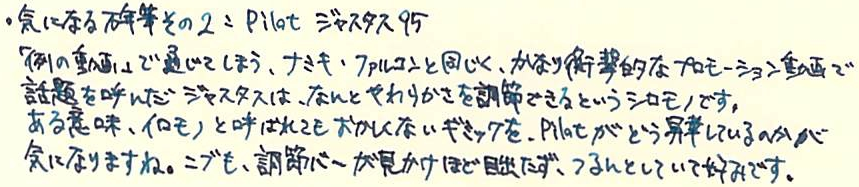 ・気になる万年筆その2：Pilot ジャスタス95
「例の動画」で通じてしまう、ナミキ・ファルコンと同じく、かなり衝撃的なプロモーション動画で
話題を呼んだジャスタスは、なんとやわらかさを調節できるというシロモノです。
ある意味、イロモノと呼ばれてもおかしくないギミックを、Pilotがどう昇華しているのかが
気になりますね。ニブも、調節バーが見かけほど目出たず、つるんとしていて好みです。